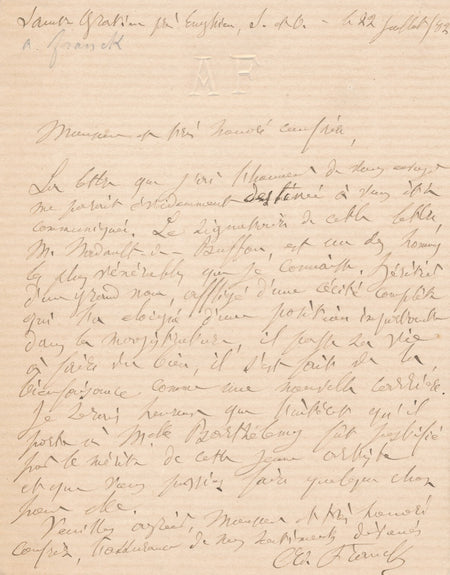 Saint Gratien près Enghien, S. et O. - le 22 juillet/82
A. Franck
AF
Monsieur et très honoré confrère,
La lettre que j'ai l'honneur de vous envoyer
me paraît évidemment destinée à vous être
communiquée. Le signataire de cette lettre,
M. Nadault de Buffon, est un des hommes
les plus vénérables que je connaisse. Héritier
d'un grand nom, affligé d'une cécité complète
qui l'a éloigné d'une position importante
dans la magistrature, il passe sa vie
à faire du bien, il s'est fait de la
bienfaisance comme une nouvelle carrière.
Je serais heureux que l'intérêt qu'il
porte à Melle Barthélemy fût justifié
par le mérite de cette jeune artiste
et que vous puissiez faire quelque chose
pour elle.
Veuillez agréer, Monsieur et très honoré
confrère, l'assurance de mes sentiments dévoués
Ad. Franck